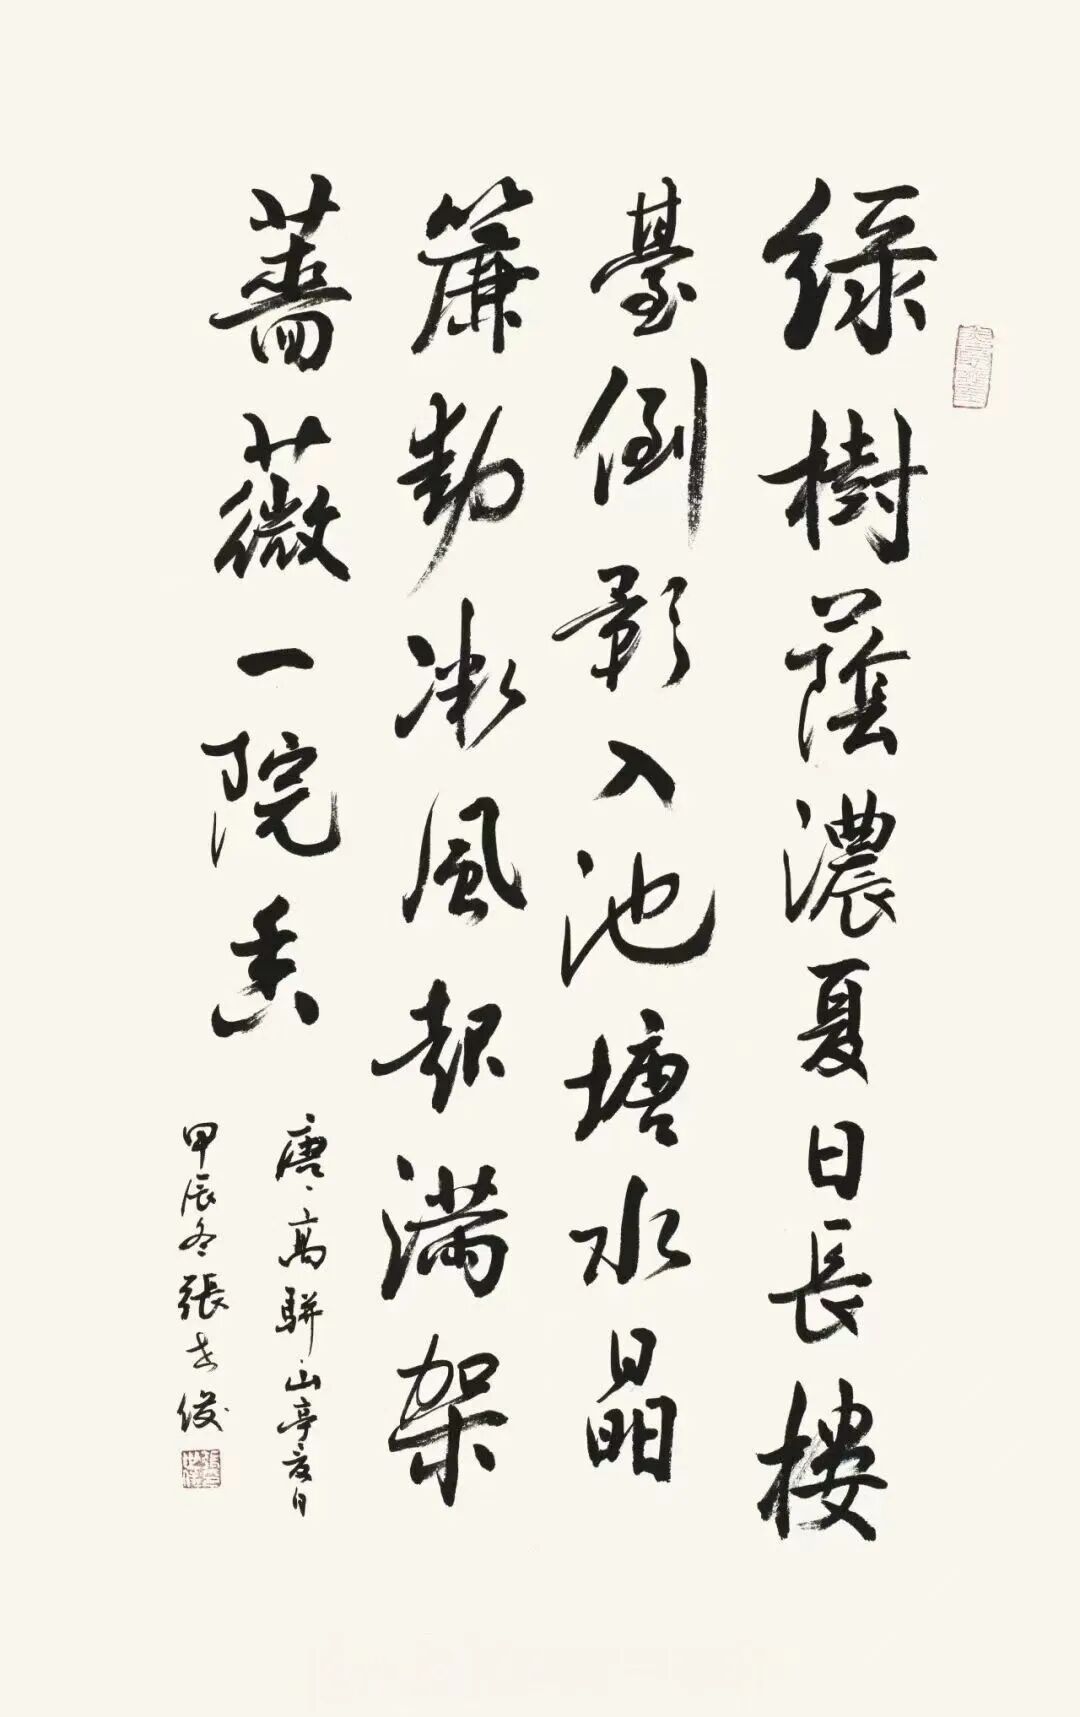 綠樹蔭濃夏日長樓
臺倒影入池塘水晶
簾動微風起滿架
薔薇一院香
唐高駢山亭夏日
甲辰冬張世俊